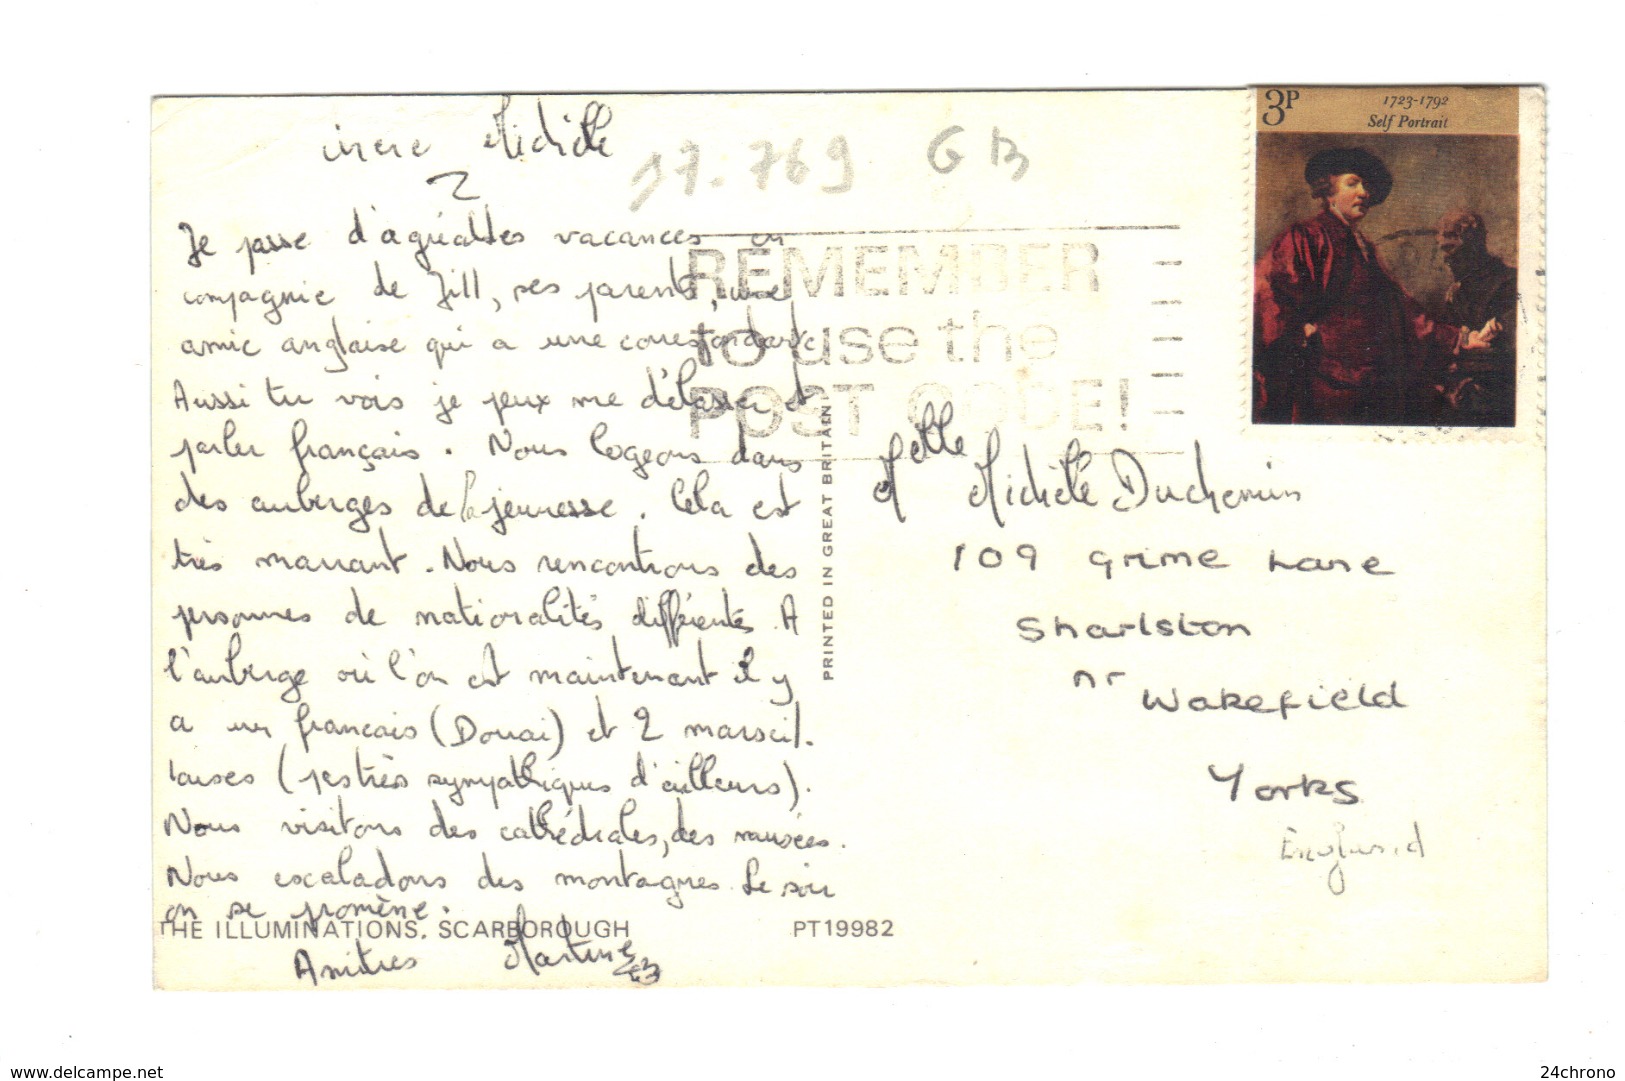 Michèle
Je passe d'agréables vacances en
compagnie de Jill, ses parents, une
amie anglaise qui a une correspondante
Aussi tu vois je peux me délasser et
parler français. Nous logeons dans
des auberges de la jeunesse. Cela est
très marrant. Nous rencontrons des
personnes de nationalités différentes. A
l'auberge où l'on est maintenant il y
a un français (Douai) et 2 marseil.
laises (très sympathiques d'ailleurs).
Nous visitons des cathédrales, des musées.
Nous escaladons des montagnes. Le soir
on se promène.
Amitiés Martine
THE ILLUMINATIONS, SCARBOROUGH PT19982
PRINTED IN GREAT BRITAIN
17.769 GB
REMEMBER
to use the
POST CODE!
3P
1723-1792
Self Portrait
Melle Michèle Duchemin
109 Grime Lane
Sharlston
nr Wakefield
Yorks
England
www.delcampe.net
24chrono